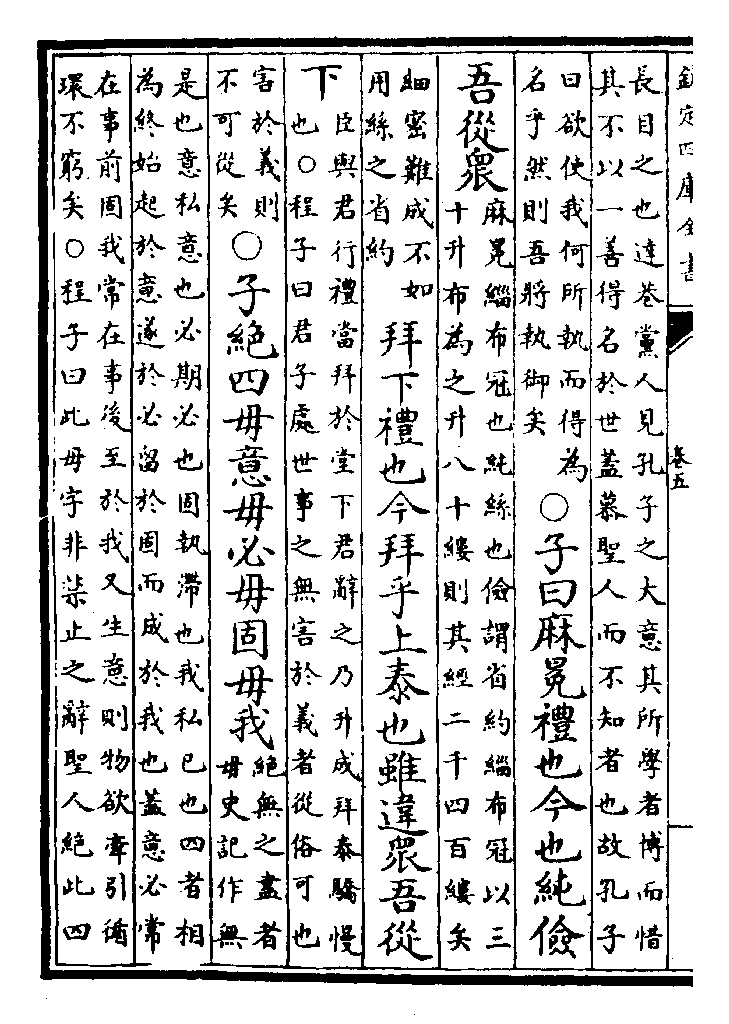 欽定四庫全書
卷五
長目之也達巷黨人見孔子之大意其所學者博而惜
其不以一善得名於世蓋慕聖人而不知者也故孔子
曰欲使我何所執而得為
名乎然則吾將執御矣
○子曰麻冕禮也今也純儉
吾從眾
麻冕緇布冠也純絲也儉謂省約緇布冠以三
十升布為之升八十縷則其經二千四百縷矣
細密難成不如
用絲之省約
拜下禮也今拜乎上泰也雖違眾吾從
下
臣與君行禮當拜於堂下君辭之乃升成拜泰驕慢
也○程子曰君子處世事之無害於義者從俗可也
害於義則
不可從矣
○子絕四毋意毋必毋固毋我
絕無之盡者
毋史記作無
是也意私意也必期必也固執滯也我私己也四者相
為終始起於意遂於必留於固而成於我也蓋意必常
在事前固我常在事後至於我又生意則物欲牽引循
環不窮矣○程子曰此毋字非禁止之辭聖人絕此四